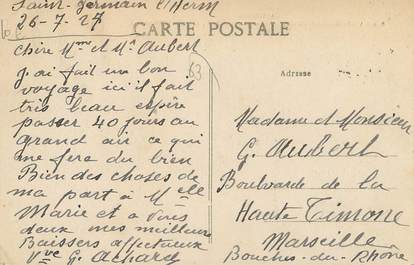 Saint-Germain l'Herm
26-7-27
CARTE POSTALE
Chère Mme et Mr Aubert
J'ai fait un bon
voyage ici il fait
très beau espère
passer 40 jours au
grand air ce qui
me fera du bien
Bien des choses de
ma part à Melle
Marie et a vous
deux mes meilleurs
Baissers affectueux
Vve G. Achard
63
Adresse
Madame et Monsieur
G. Aubert
Boulvarde de la
Haute Timone
Marseille
Bouches-du-Rhône